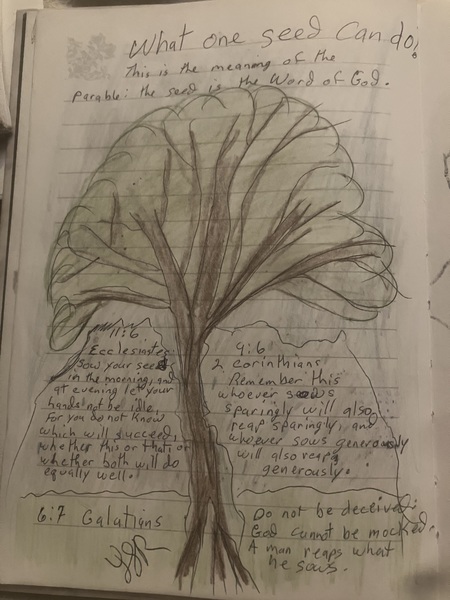 What one seed Can do!
This is the meaning of the
parable: the seed is the Word of God.
11:6
Ecclesiastes
Sow your seed
in the morning, and
at evening let your
hands not be idle,
for you do not know
which will succeed,
whether this or that, or
whether both will do
equally well.
9:6
2 corinthians
Remember this
whoever sows
sparingly will also
reap sparingly, and
whoever sows generously
will also reap
generously.
6:7 Galatians
Do not be deceived:
God cannot be mocked.
A man reaps what
he sows.